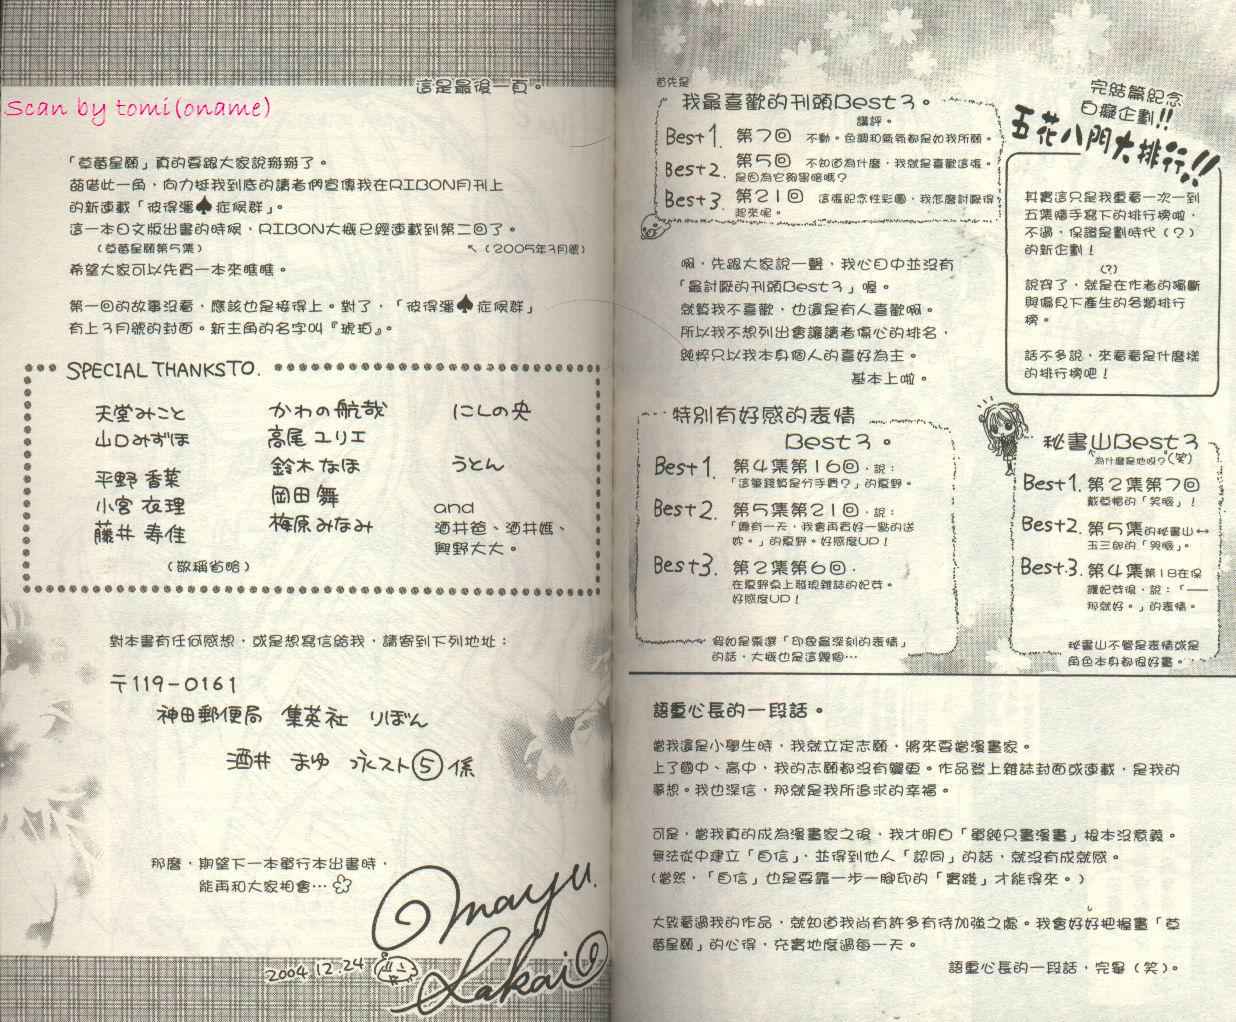 完結篇紀念
白癡企劃!!
五花八門大排行!!
其實這只是我重看一次一到
五集隨手寫下的排行榜啦。
不過，保證是劃時代（？）
的新企劃！
(?)
說穿了，就是在作者的獨斷
與偏見下產生的各類排行
榜。
話不多說，來看看是什麼樣
的排行榜吧！
首先是
我最喜歡的刊頭Best3。
講評。
Best1. 第7回 不動。色調和氣氛都是如我所願。
Best2. 第5回 不知道為什麼，我就是喜歡這張。
是因為它夠單純嗎？
Best3. 第21回 這張紀念性彩圖，我怎麼討厭得
起來呢。
啊，先跟大家說一聲，我心目中並沒有
「最討厭的刊頭Best3」喔。
就算我不喜歡，也還是有人喜歡啊。
所以我不想列出會讓讀者傷心的排名，
純粹只以我本身個人的喜好為主。
基本上啦。
特別有好感的表情
Best3。
Best1. 第4集第16回，說：
「這筆錢算是分手費？」的夏野。
Best2. 第5集第21回，說：
「總有一天，我會再買好一點的送
妳。」的夏野。好感度UP！
Best3. 第2集第6回，
在夏野桌上發現雜誌的妃芽。
好感度UP！
假如是票選「印象最深刻的表情」
的話，大概也是這幾個…
秘書山Best3
為什麼是他呀？(笑)
Best1. 第2集第7回
戴草帽的「笑臉」！
Best2. 第5集的秘書山↔
玉三郎的「哭臉」。
Best3. 第4集第18在保
護妃芽後，說：「──
那就好。」的表情。
秘書山不管是表情或是
角色本身都很好畫。
語重心長的一段話。
當我還是小學生時，我就立定志願，將來要當漫畫家。
上了國中、高中，我的志願都沒有變更。作品登上雜誌封面或連載，是我的
夢想。我也深信，那就是我所追求的幸福。
可是，當我真的成為漫畫家之後，我才明白「單純只畫漫畫」根本沒意義。
無法從中建立「自信」，並得到他人「認同」的話，就沒有成就感。
（當然，「自信」也是要靠一步一腳印的「實踐」才能得來。）
大致看過我的作品，就知道我尚有許多有待加強之處。我會好好把握畫「草
莓星願」的心得，充實地度過每一天。
語重心長的一段話，完畢（笑）。
這是最後一頁。
Scan by tomi(oname)
「草莓星願」真的要跟大家說掰掰了。
茲借此一角，向力挺我到底的讀者們宣傳我在RIBON月刊上
的新連載「彼得潘♠症候群」。
這一本日文版出書的時候，RIBON大概已經連載到第二回了。
（草莓星願第5集） ↖（2005年3月號）
希望大家可以先買一本來瞧瞧。
第一回的故事沒看，應該也是接得上。對了，「彼得潘♠症候群」
有上3月號的封面。新主角的名字叫『琥珀』。
SPECIAL THANKS TO.
天堂みこと
山口みずほ
平野 香菜
小宮 衣理
藤井 寿佳
かわの 航哉
高尾 ユリエ
鈴木 なほ
岡田 舞
梅原 みなみ
にしの 央
うとん
and
酒井爸、酒井媽、
興野大大。
（敬稱省略）
對本書有任何感想，或是想寫信給我，請寄到下列地址：
〒119-0161
神田郵便局 集英社 りぼん
酒井 まゆ ふぁスト⑤係
那麼，期望下一本單行本出書時，
能再和大家相會…
Mayu.
Sakai
2004.12.24